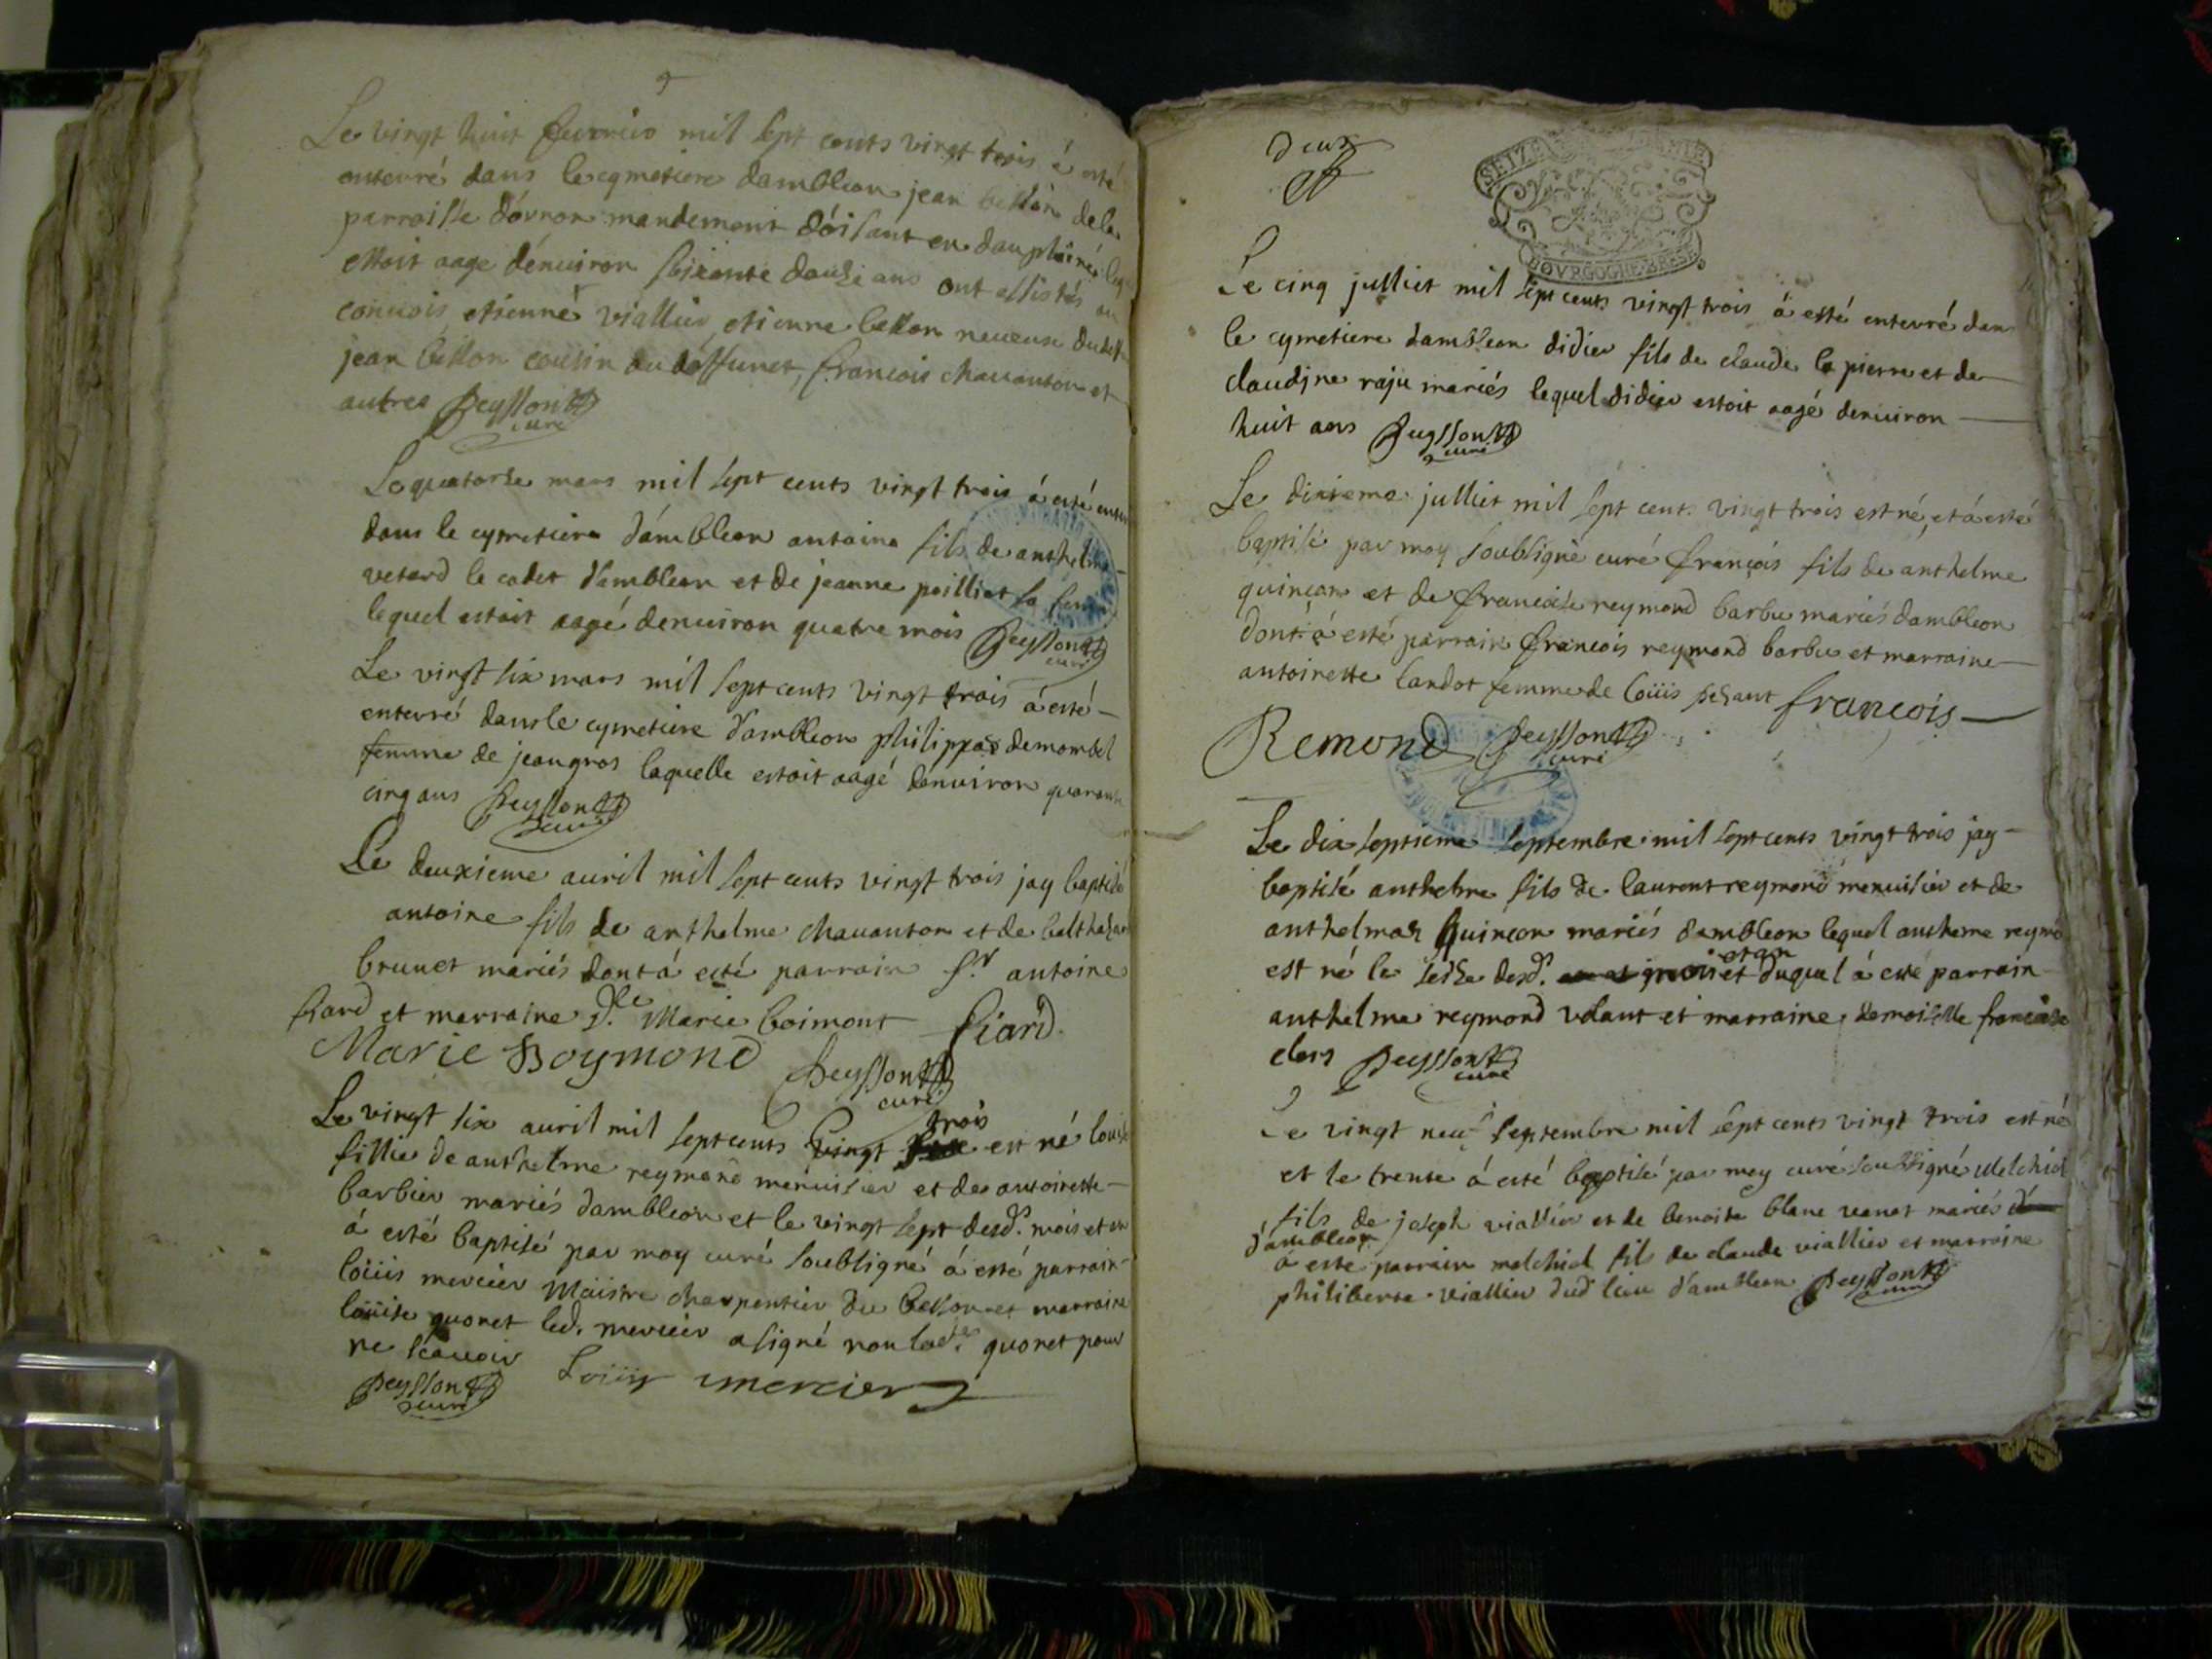 Le vingt huit fevrier mil sept cents vingt trois á esté
enterré dans le cymetiere dambleon jean bellon de la
parroisse dóvron mandement dóisant en dauphiné
estoit aagé dénuiron soixante douze ans ont assistés au
conuois etienne viallier etienne bellon neueux dudit
jean bellon cousin du deffunct, francois chauanton et
autres Peysson
curé
Le quatorze mars mil sept cents vingt trois á esté
dans le cymetiere dámbleon antoine fils de anthelme
vetard le cadet dambleon et de jeanne poilliet sa femme
lequel estoit aagé denuiron quatre mois Peysson
curé
Le vingt six mars mil sept cents vingt trois á esté
enterré dans le cymetiere dambleon philippaz demombel
femme de jean gros laquelle estoit aagé denuiron quarante
cinq ans Peysson
curé
Le deuxieme auril mil sept cents vingt trois jay baptisé
antoine fils de anthelme chauanton et de balthazar
brunet mariés dont á esté parrain sr. antoine
siard et marraine dlle Marie boimont Siard
Marie Boymond Peysson
curé
Le vingt six auril mil sept cents vingt trois est né louise
fillie de anthelme reymond menuisier et de antoinette
barbier mariés dambleon et le vingt sept desd. mois et an
á esté baptisé par moy curé soubsigné á esté parrain
loüis mercier Maistre charpentier du bellon et marraine
loüise quonet led. mercier a signé non lad. quonet pour
ne scauoir Loüis mercier
Peysson
curé
deux
SEIZE
BOVRGOGNE BRESSE
Le cinq julliet mil sept cents vingt trois á esté enterré dans
le cymetiere dambleon didier fils de claude la pierre et de
claudine raju mariés lequel didier estoit aagé denuiron
huit ans Peysson
curé
Le dixieme julliet mil sept cents vingt trois est né, et á esté
baptisé par moy soubsigné curé françois fils de anthelme
quinçon et de francoise reymond barbu mariés dambleon
dont á esté parrain francois reymond barbu et marraine
antoinette landot femme de loüis pesant francois
Remond Peysson
curé
Le dix septieme septembre mil sept cents vingt trois jay
baptisé anthelme fils de laurent reymond menuisier et de
anthelmaz quinçon mariés dambleon lequel anthelme reymond
est né le seize desd. mois et an et duquel á esté parrain
anthelme reymond volant et marraine demoiselle francoise
clers Peysson
curé
Le vingt neuf septembre mil sept cents vingt trois est né
et le trente á esté baptisé par moy curé soubsigné Melchiol
fils de joseph viallier et de benoite blanc venet mariés
dámbleon
á esté parrain melchiol fils de claude viallier et marraine
philiberte viallier dud lieu dambleon Peysson
curé